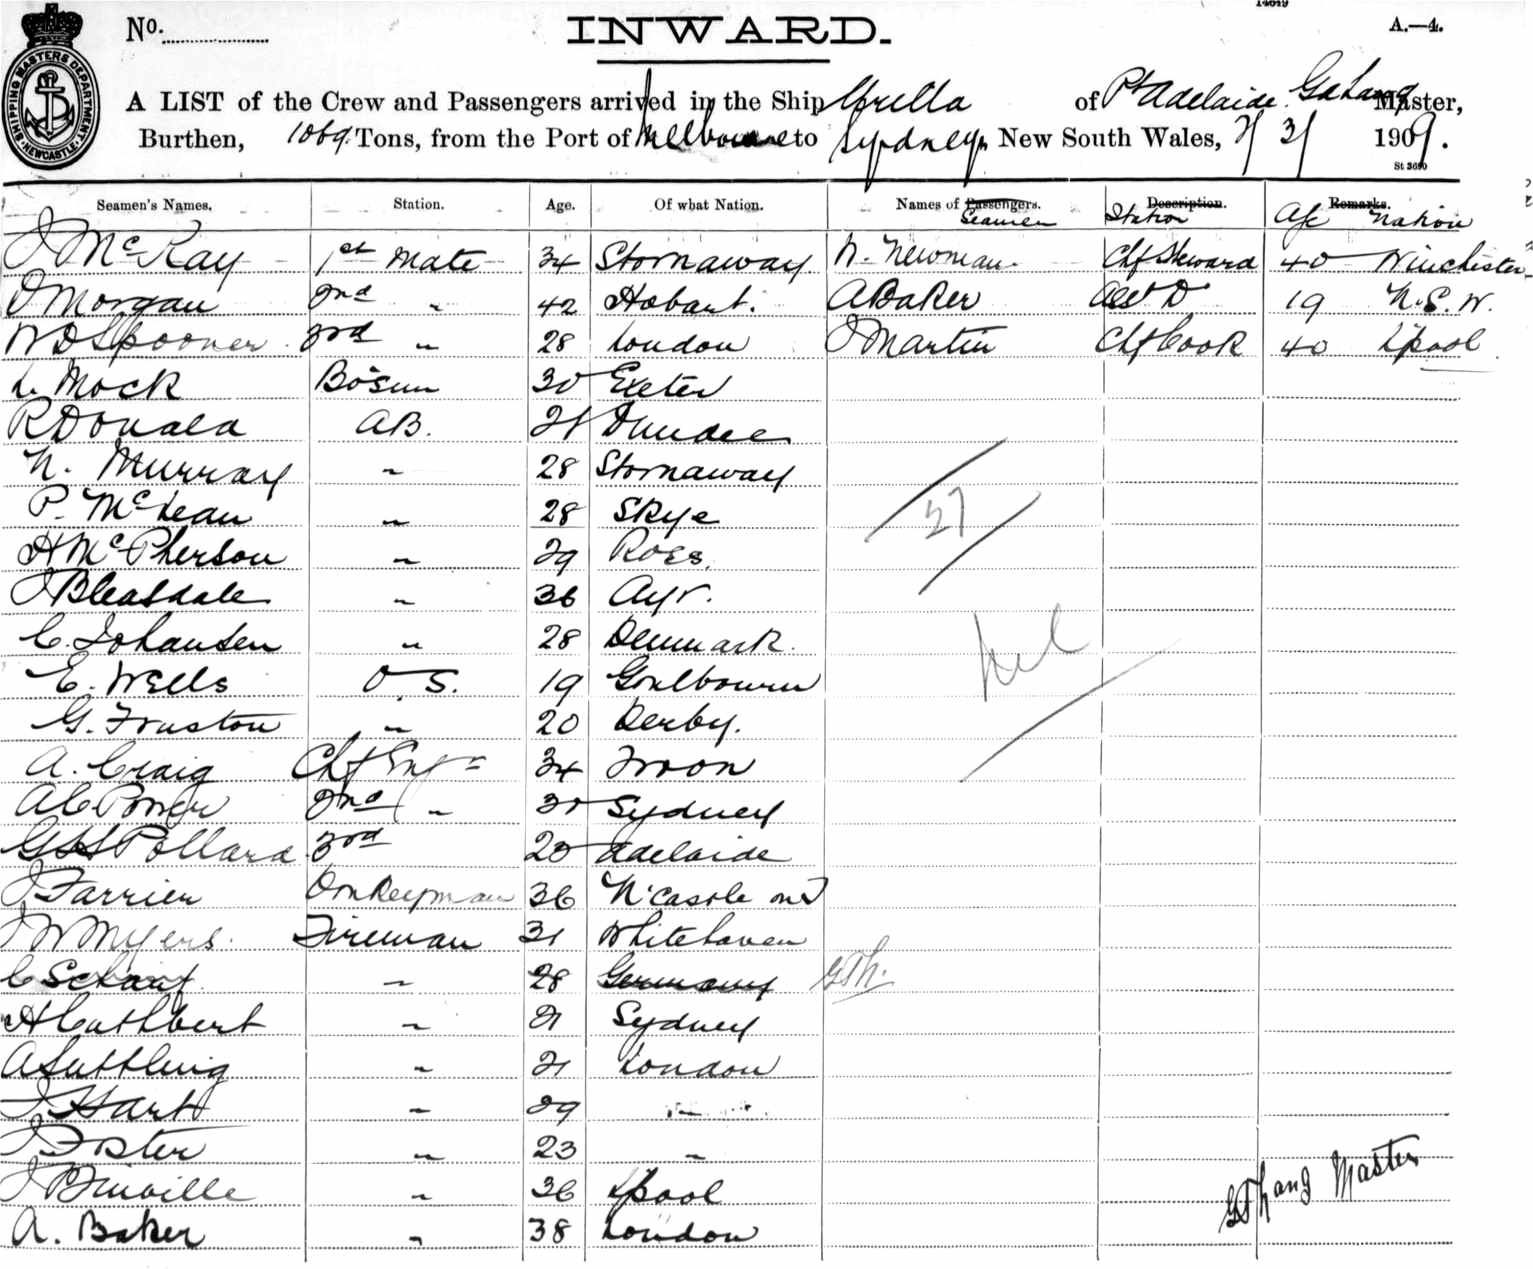 14619
No. INWARD. A.—4.
SHIPPING MASTERS DEPARTMENT NEWCASTLE
A LIST of the Crew and Passengers arrived in the Ship of Pt Adelaide Master,
Burthen, 1069 Tons, from the Port of Melbourne to Sydney New South Wales, 1909.
St 3690
Seamen's Names. Station. Age. Of what Nation. Names of Passengers. Seamen Description. Station Remarks. Age Nation
J McKay 1st Mate 34 Stornaway N. Newman Chf Steward 40 Winchester
D Morgan 2nd " 42 Hobart. A Baker Asst Do 19 N.S.W.
W D Spooner 3rd " 28 London J Martin Chf Cook 40 L'pool
L Mock Bosun 30 Exeter
R Donald A.B. 21 Dundee
N. Murray " 28 Stornaway
P. McLean " 28 Skye
H McPherson " 29 Ross.
J Bleasdale " 36 Ayr.
C. Johansen " 28 Denmark.
E. Wells O.S. 19 Goulbourn
G. Fruston " 20 Derby.
A. Craig Chf Engr 34 Troon
A C Power 2nd " 30 Sydney
Pollard 3rd 20 Adelaide
J Farrier Donkeyman 36 N'Castle
J W Myers. Fireman 31 Whitehaven
C Scharf " 28 Germany
H Cuthbert " 21 Sydney
A Suttling " 21 London
J. Hart " 29 "
J Foster " 23 "
J " 36 L'pool
A. Baker " 38 London
27
Nil
GTh.
GThang Master